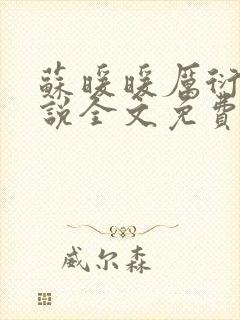 蘇暖暖厲衍
說全文免費
威尔森